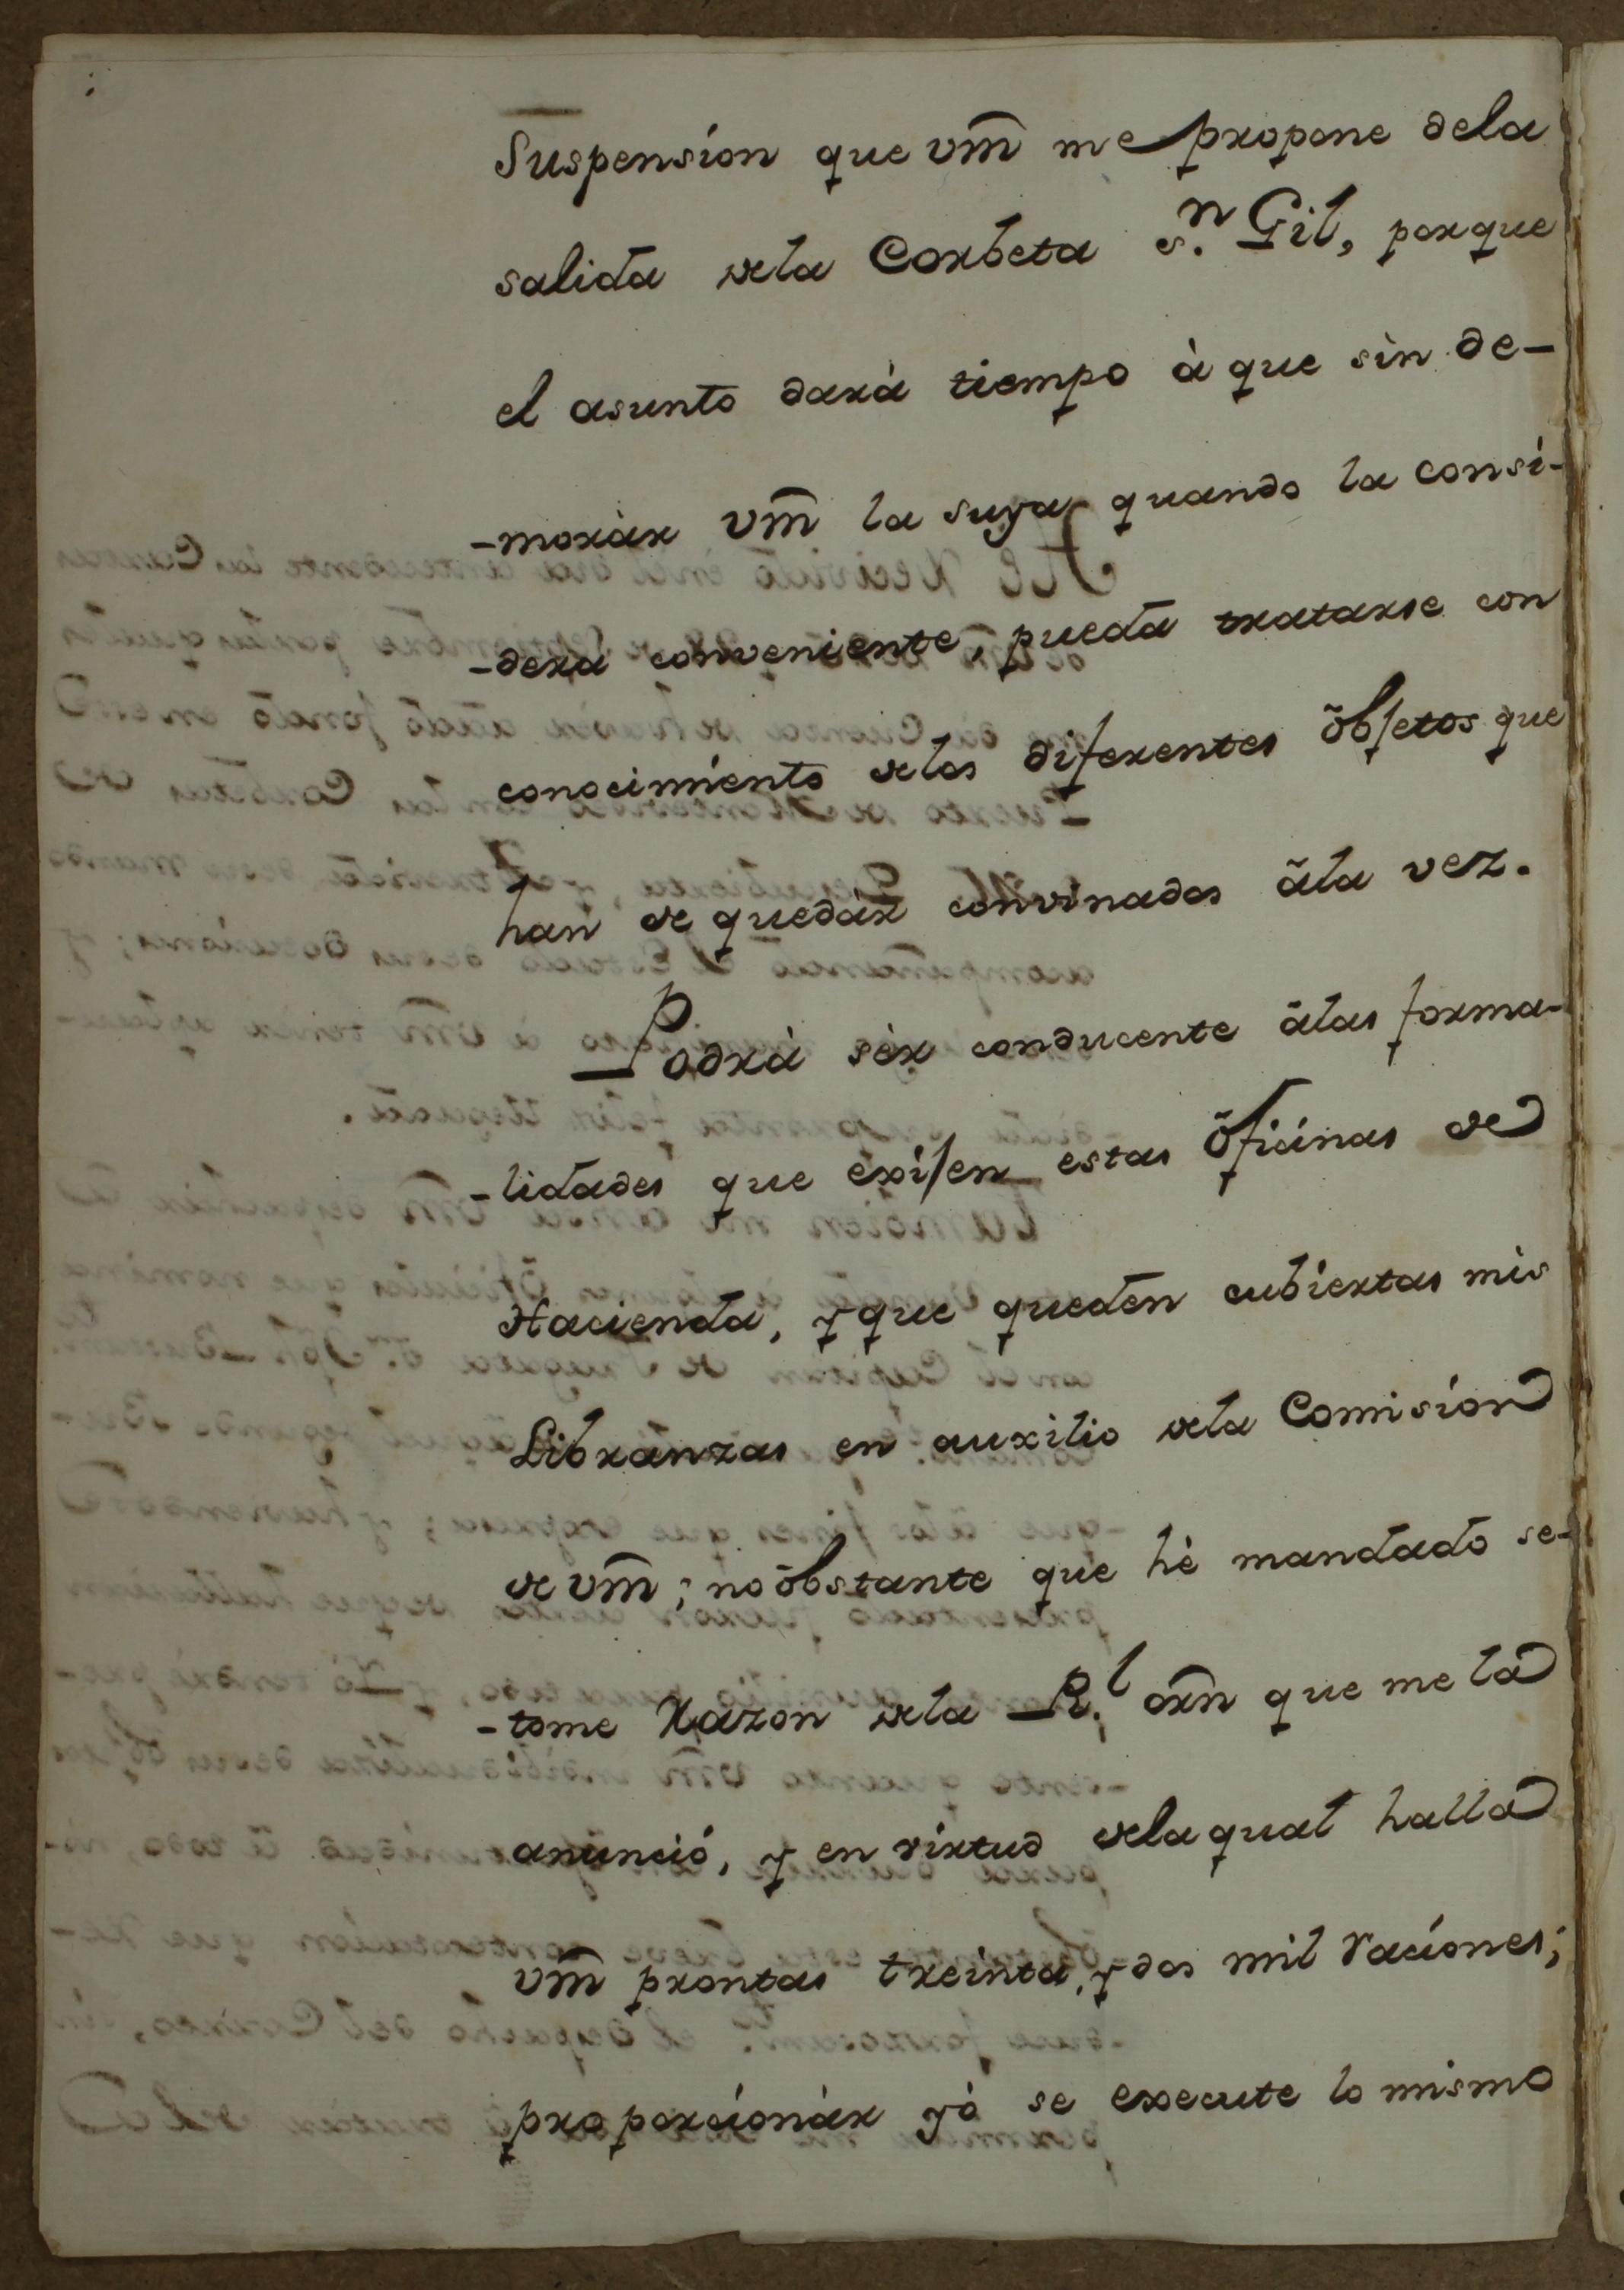 Suspensíon que vm̃ me propone dela
salida dela Corbeta S.ⁿ Gil, porque
el asunto darà tiempo à que sìn de-
-moràr vm̃ la suya quando la consí-
-dera conveniente, pueda tratarse con
conocimíento delos diferentes õbjetos que
han de quedàr convínados ãla vez.
Podrà sèr conducente ãlas forma-
-lidades que exíjen estas Õficínas de
Hacienda, y que queden cubíertas mis
Libranzas en auxilio dela Comisíon
de vm̃; no õbstante que hè mandado se-
-tome Razon dela R.ˡ orñ que me la
anunció, y en vírtud dela qual halla
vm̃ prontas treínta, y dos mil racíones;
proporcíonàr yó se execute lo mismo